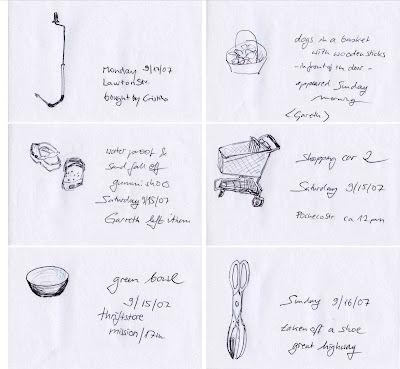 Monday 9/17/07
Lawton Str.
bought by Cristina
dogs in a basket
with wooden sticks
- in front of the door -
appeared Sunday
morning
(Gareth)
water proof &
sand fall off
gummi shoo
Saturday 9/15/07
Gareth left them
Shopping car 2
Saturday 9/15/07
Pacheco Str ca 12 pm
green bowl
9/15/07
thriftstore
mission/17th
Sunday 9/16/07
taken off a shoe
great highway